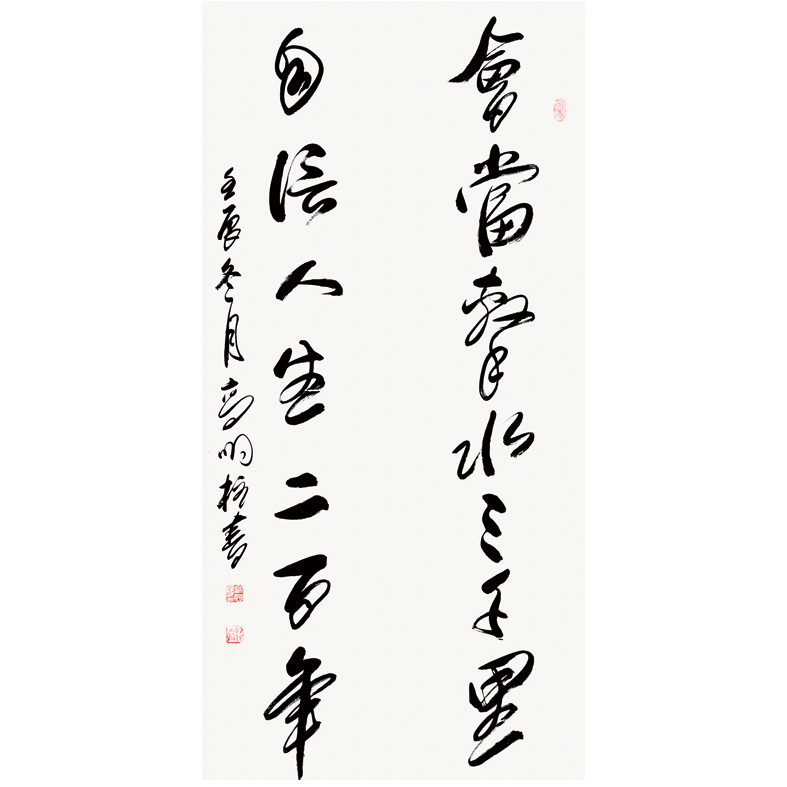 會當擊水三千里
自信人生二百年
壬辰冬月高明柱書